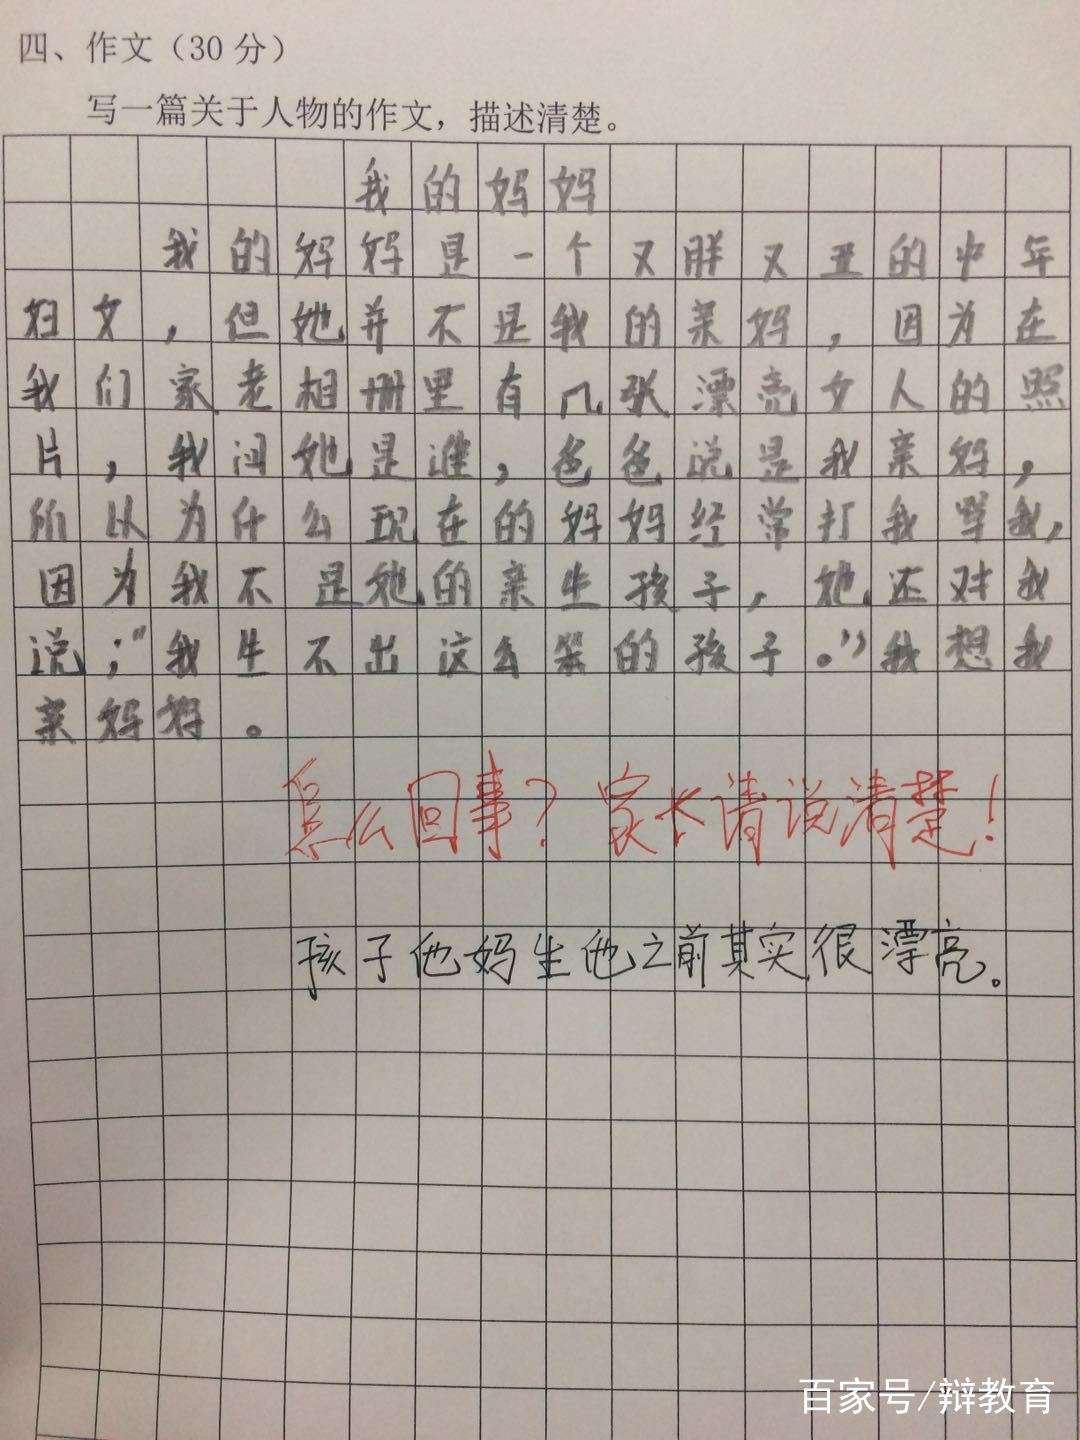 四、作文（30 分）
写一篇关于人物的作文，描述清楚。
我的妈妈
我的妈妈是一个又胖又丑的中年
妇女，但她并不是我的亲妈，因为在
我们家老相册里有几张漂亮女人的照
片，我问她是谁，爸爸说是我亲妈，
所以为什么现在的妈妈经常打我骂我，
因为我不是她的亲生孩子，她还对我
说；“我生不出这么笨的孩子。”我想我
亲妈妈。
怎么回事？家长请说清楚！
孩子他妈生他之前其实很漂亮。
百家号/辩教育